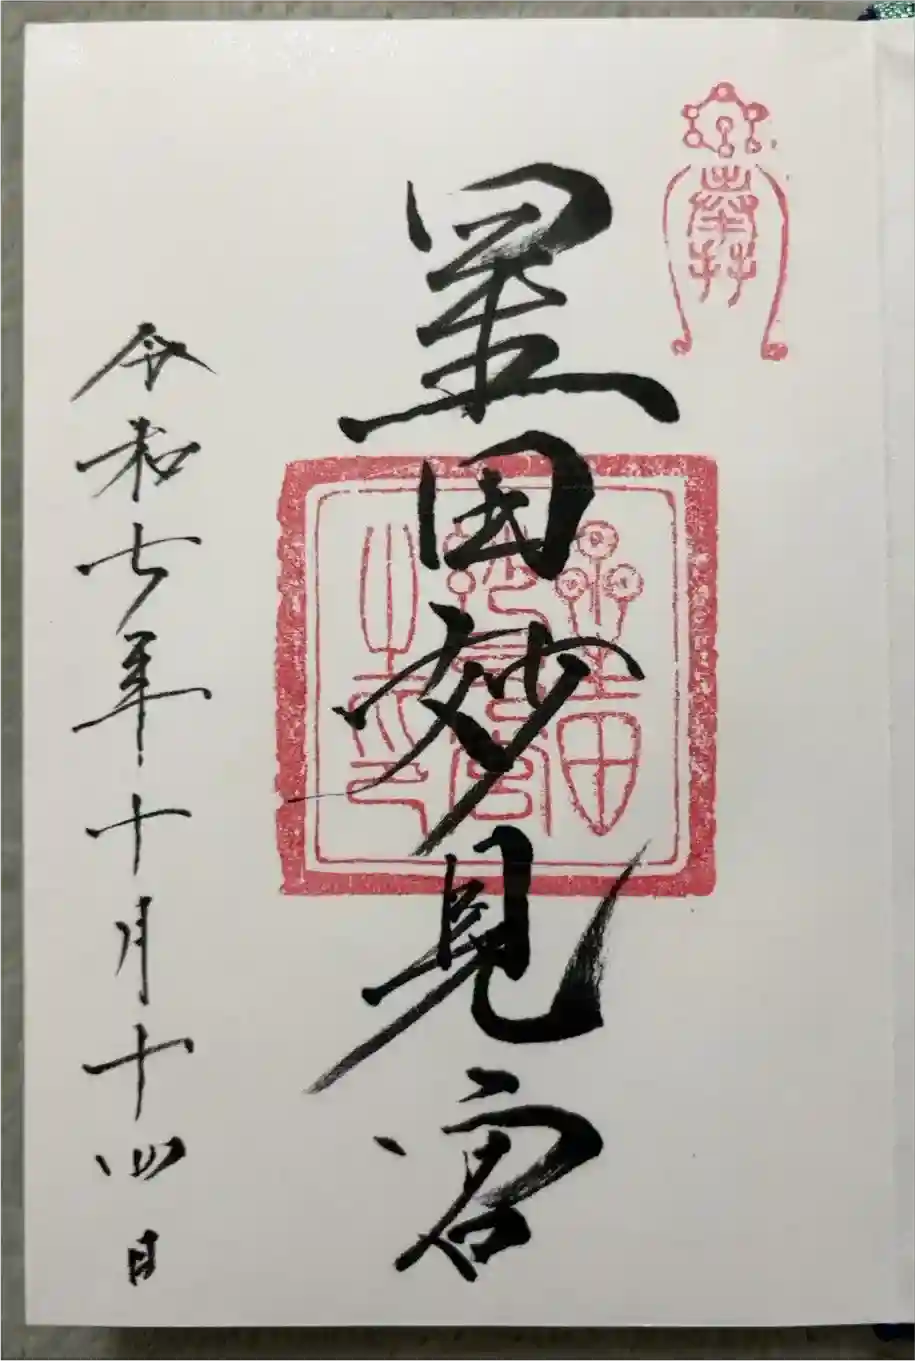 奉拝
星田妙見宮
星田
妙見宮
之印
令和七年十月十四日